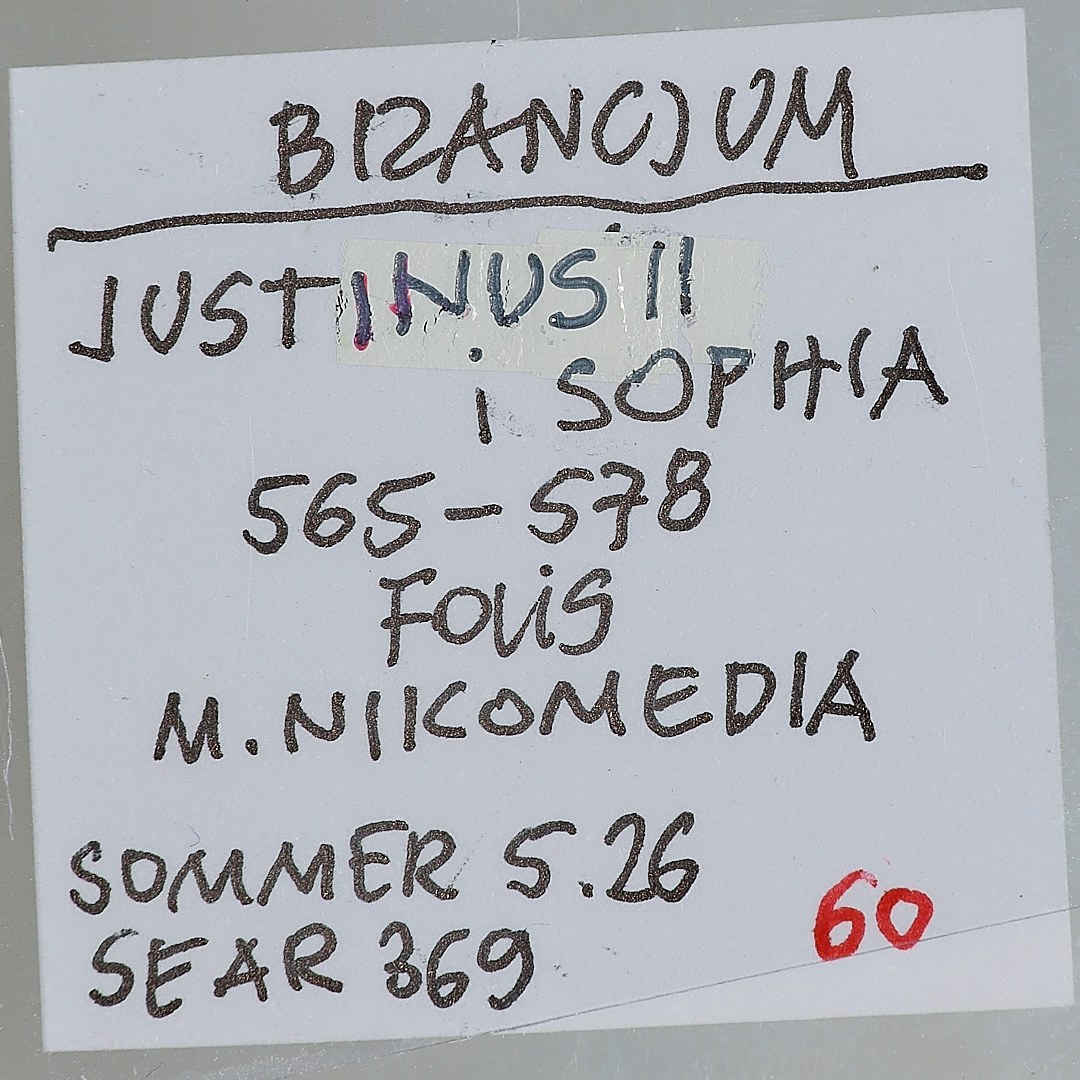 BIZANCJUM
JUSTINUS II
i SOPHIA
565-578
FOLIS
M. NIKOMEDIA
SOMMER 5.26
SEAR 369
60